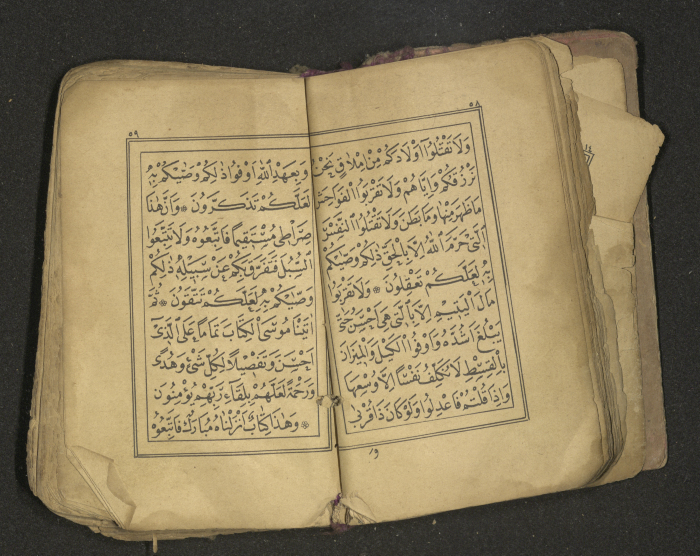 ٥٨
وَلَا تَقْتُلُوا اَوْلَادَكُمْ مِنْ اِمْلَاقٍ نَحْنُ
نَرْزُقُكُمْ وَاِيَّاهُمْ وَلَا تَقْرَبُوا الْفَوَاحِشَ
مَا ظَهَرَ مِنْهَا وَمَا بَطَنَ وَلَا تَقْتُلُوا النَّفْسَ
الَّتِي حَرَّمَ اللّٰهُ اِلَّا بِالْحَقِّ ذٰلِكُمْ وَصّٰيكُمْ
بِهِ لَعَلَّكُمْ تَعْقِلُونَ * وَلَا تَقْرَبُوا
مَالَ الْيَتِيمِ اِلَّا بِالَّتِي هِيَ اَحْسَنُ حَتّٰى
يَبْلُغَ اَشُدَّهُ وَاَوْفُوا الْكَيْلَ وَالْمِيزَانَ
بِالْقِسْطِ لَا نُكَلِّفُ نَفْسًا اِلَّا وُسْعَهَا
وَاِذَا قُلْتُمْ فَاعْدِلُوا وَلَوْ كَانَ ذَا قُرْبٰى
٥٩
وَبِعَهْدِ اللّٰهِ اَوْفُوا ذٰلِكُمْ وَصّٰيكُمْ بِهِ
لَعَلَّكُمْ تَذَكَّرُونَ * وَاَنَّ هٰذَا
صِرَاطِي مُسْتَقِيمًا فَاتَّبِعُوهُ وَلَا تَتَّبِعُوا
السُّبُلَ فَتَفَرَّقَ بِكُمْ عَنْ سَبِيلِهِ ذٰلِكُمْ
وَصّٰيكُمْ بِهِ لَعَلَّكُمْ تَتَّقُونَ * ثُمَّ
اٰتَيْنَا مُوسَى الْكِتَابَ تَمَامًا عَلَى الَّذِي
اَحْسَنَ وَتَفْصِيلًا لِكُلِّ شَيْءٍ وَهُدًى
وَرَحْمَةً لَعَلَّهُمْ بِلِقَاءِ رَبِّهِمْ يُؤْمِنُونَ
* وَهٰذَا كِتَابٌ اَنْزَلْنَاهُ مُبَارَكٌ فَاتَّبِعُوهُ